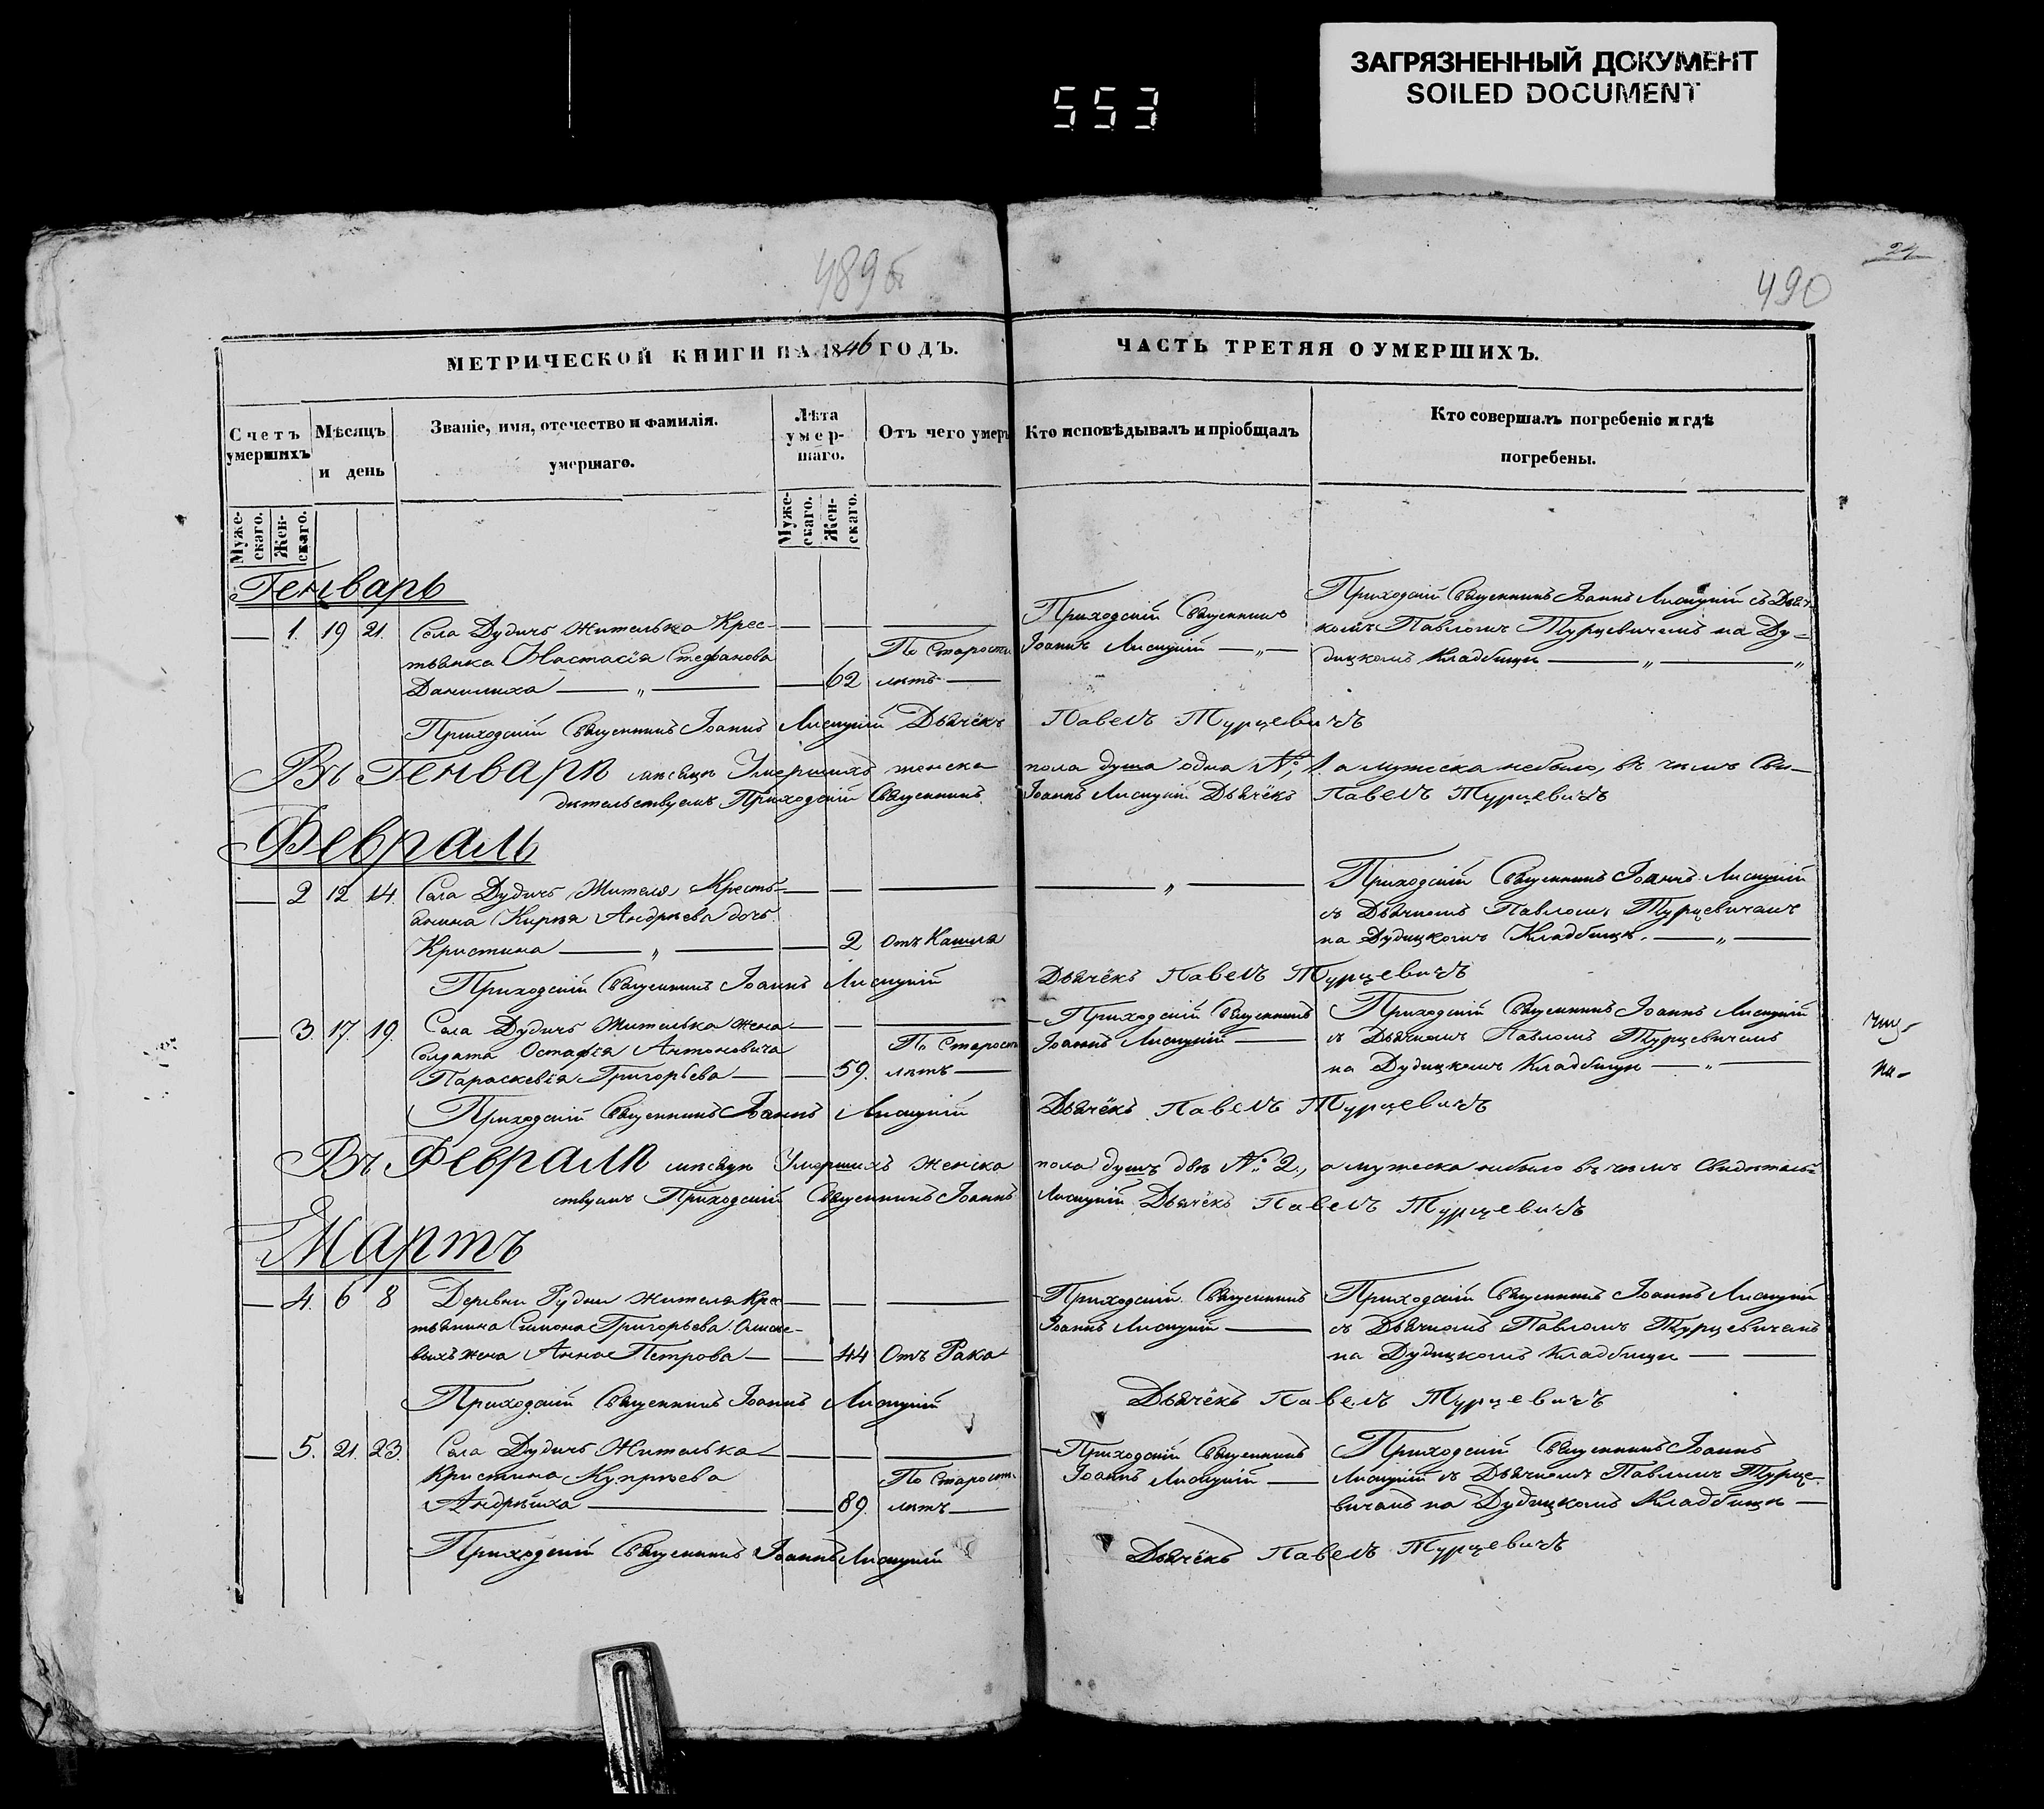 ЗАГРЯЗНЕННЫЙ ДОКУМЕНТ
SOILED DOCUMENT
553
24
489б
490
МЕТРИЧЕСКОЙ КНИГИ НА 1846 ГОДЪ.
ЧАСТЬ ТРЕТЯЯ О УМЕРШИХЪ.
Счетъ умершихъ
Мѣсяцъ и день
Званіе, имя, отечество и фамилія.
умершаго.
Лѣта умер-шаго.
Отъ чего умеръ
Кто исповѣдывалъ и пріобщалъ
Кто совершалъ погребеніе и гдѣ
погребены.
Муже-скаго.
Жен-скаго.
Муже-скаго.
Жен-скаго.
Генварь
1. 19 21. Села Дудичъ жителька Крес-
тьянка Настасія Стефанова
Данилиха — „ — 62
По Старости
лѣтъ —
Приходскій Священникъ
Іоаннъ Лисицкій — „ —
Приходскій Священникъ Іоаннъ Лисицкій съ Дьяч-
комъ Павломъ Турцевичемъ на Ду-
дицкомъ Кладбищѣ — „ — „
Приходскій Священникъ Іоаннъ Лисицкій Дьячёкъ Павелъ Турцевичъ
Въ Генварѣ мѣсяцѣ Умершихъ женска пола душа одна № 1. а мужеска небыло, въ чемъ Сви-
дѣтельствуемъ Приходскій Священникъ Іоаннъ Лисицкій Дьячёкъ Павелъ Турцевичъ
Февраль
2 12 14. Села Дудичъ Жителя Кресть-
янина Кирѣя Андрѣева дочь
Кристина — „ — 2 отъ Кашля
— „ —
Приходскій Священникъ Іоаннъ Лисицкій
съ Дьячкомъ Павломъ Турцевичемъ
на Дудицкомъ Кладбищѣ. — „ —
Приходскій Священникъ Іоаннъ Лисицкій Дьячёкъ Павелъ Турцевичъ
3. 17. 19. Села Дудичъ Жителька жена
Солдата Остафія Антоновича
Параскевія Григорьева — 59.
По Старости
лѣтъ —
Приходскій Священникъ
Іоаннъ Лисицкій —
Приходскій Священникъ Іоаннъ Лисицкій
съ Дьячкомъ Павломъ Турцевичемъ
на Дудицкомъ Кладбищѣ — „ —
Приходскій Священникъ Іоаннъ Лисицкій Дьячёкъ Павелъ Турцевичъ
Въ Февралѣ мѣсяцѣ Умершихъ женска пола душъ двѣ № 2., а мужеска небыло въ чемъ Свидѣтель-
ствуемъ Приходскій Священникъ Іоаннъ Лисицкій Дьячёкъ Павелъ Турцевичъ
Мартъ
4. 6 8 Деревни Рудни жителя Кре-
тьянина Симона Григорьева
выхъ жена Анна Петрова — 44 Отъ Рака
Приходскій Священникъ
Іоаннъ Лисицкій —
Приходскій Священникъ Іоаннъ Лисицкій
съ Дьячкомъ Павломъ Турцевичемъ
на Дудицкомъ Кладбищѣ —
Приходскій Священникъ Іоаннъ Лисицкій Дьячёкъ Павелъ Турцевичъ
5. 21. 23. Села Дудичъ Жителька
Кристина Купрѣева
Андрѣиха — 89.
По Старости
лѣтъ —
Приходскій Священникъ
Іоаннъ Лисицкій —
Приходскій Священникъ Іоаннъ
Лисицкій съ Дьячкомъ Павломъ Турце-
вичемъ на Дудицкомъ Кладбищѣ —
Приходскій Священникъ Іоаннъ Лисицкій Дьячёкъ Павелъ Турцевичъ